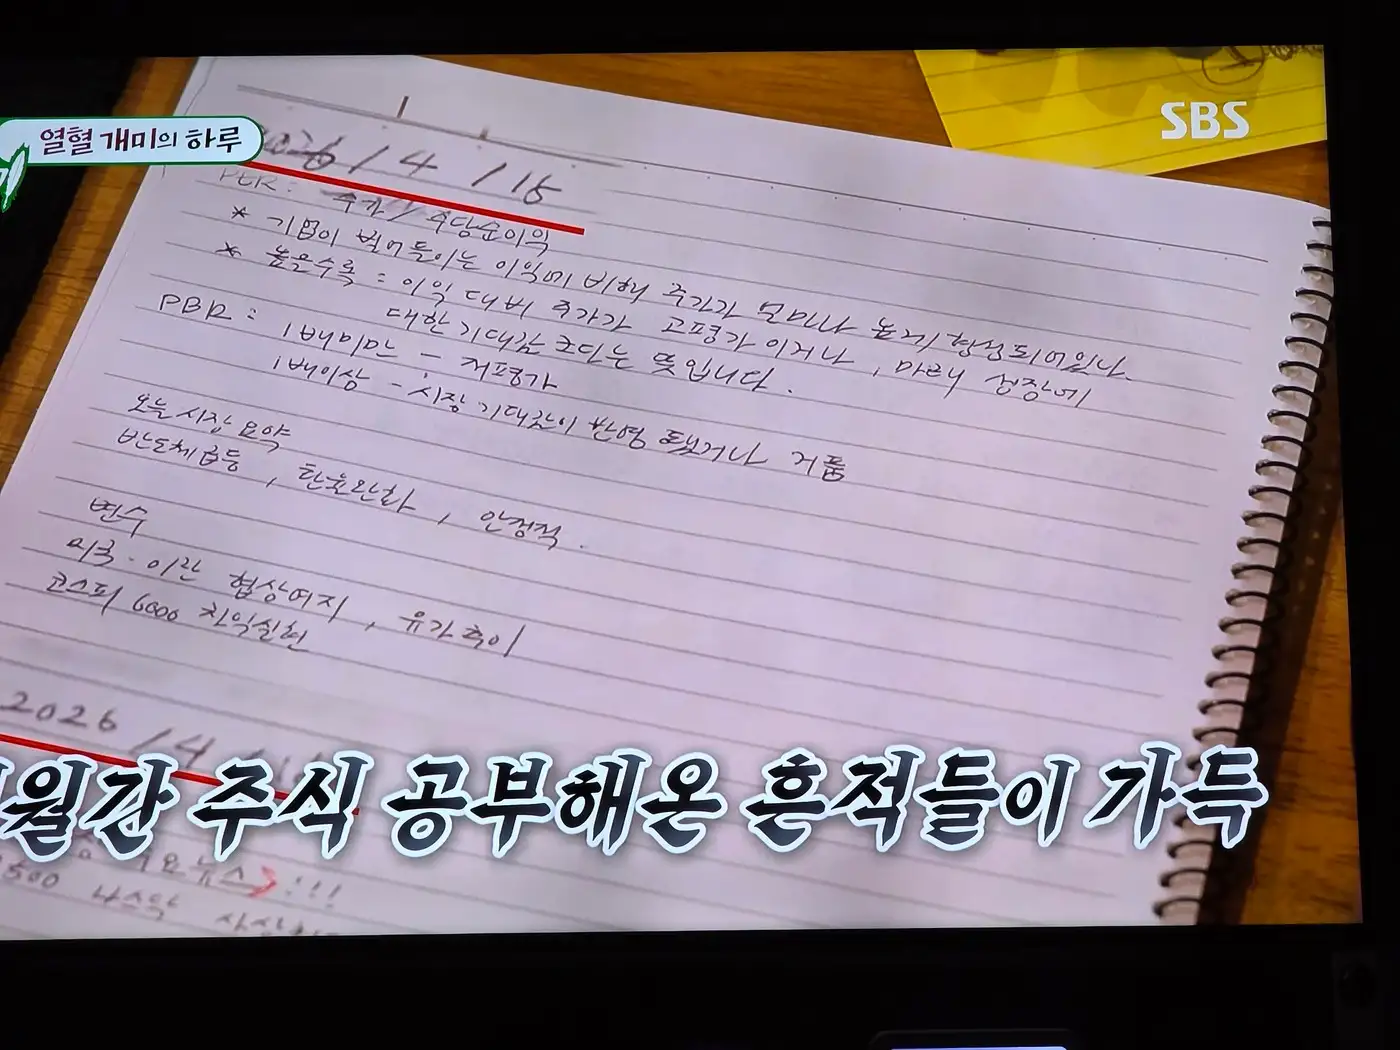 열혈 개미의 하루
SBS
2026 / 4 / 15
PER : 주가 / 주당순이익
* 기업이 벌어들이는 이익에 비해 주가가 얼마나 높게 형성되어있나.
* 높을수록 : 이익 대비 주가가 고평가 이거나, 미래 성장에
대한 기대감 크다는 뜻입니다.
PBR : 1배미만 - 저평가
1배이상 - 시장 기대감이 반영 됐거나 거품
오늘 시장 요약
반도체 급등, 환율완화, 안정적.
변수
미국-이란 협상여지, 유가 추이
코스피 6000 차익실현
2026 / 4
월간 주식 공부해온 흔적들이 가득
주요 뉴스 > !!!
500 나스닥